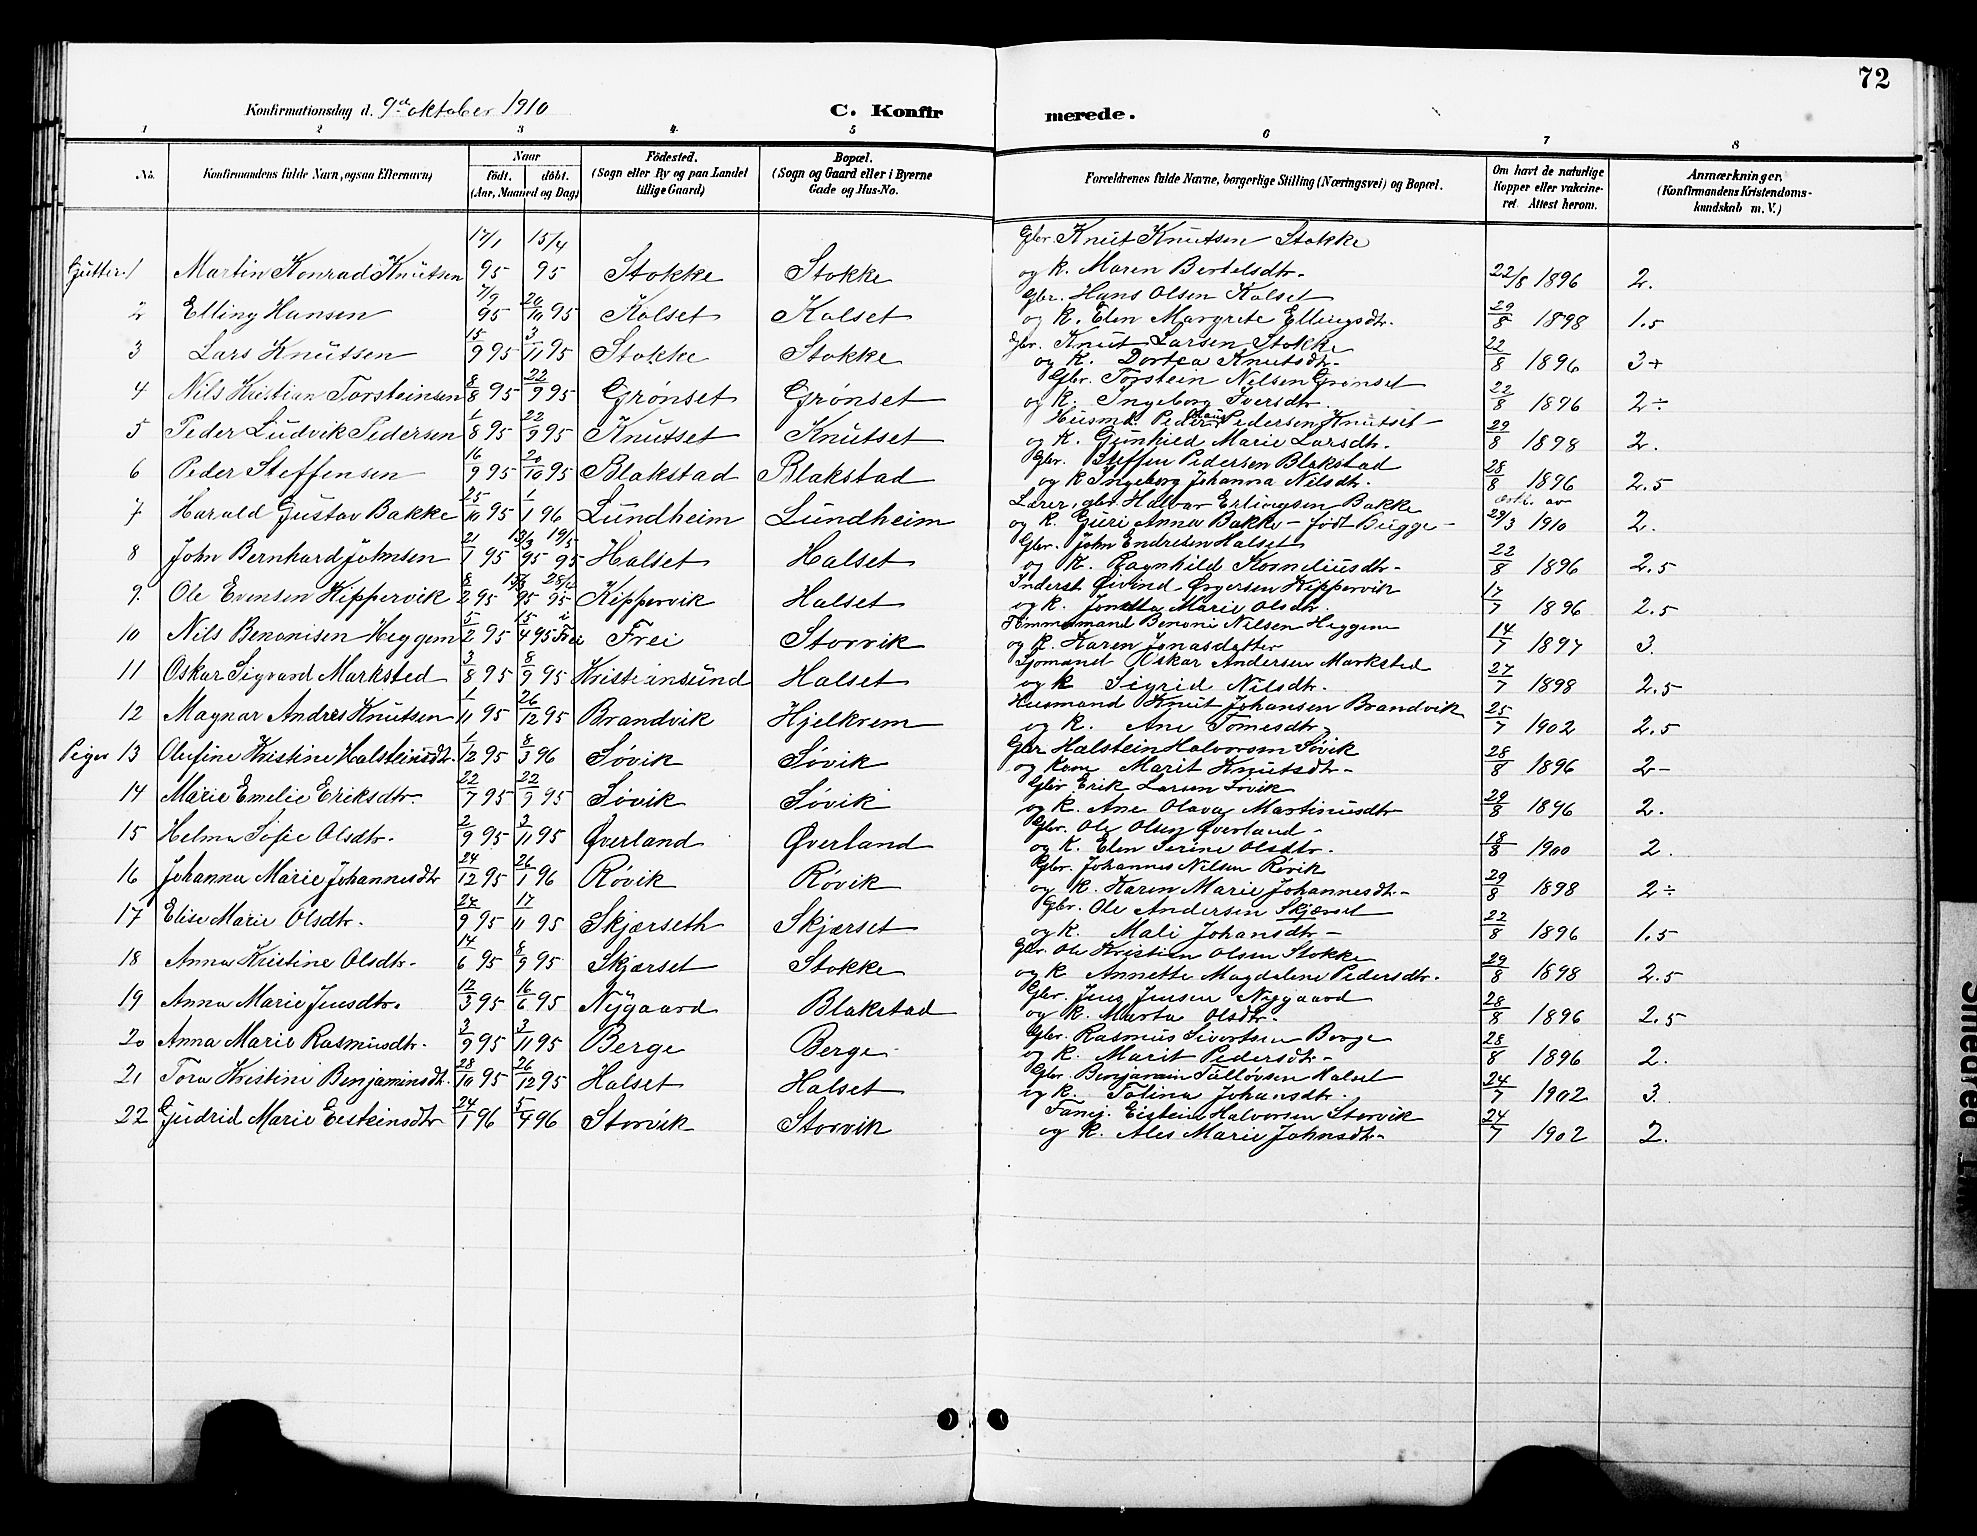 72
Konfirmationsdag d. 9de oktober 1910 C. Konfirmerede.
1 2 3 4 5 6 7 8
No. Konfirmandens fulde Navn, ogsaa Efternavn) Naar født. døbt. (Aar, Maaned og Dag) Fødested. (Sogn eller By og paa Landet tillige Gaard) Bopæl. (Sogn og Gaard eller i Byerne Gade og Hus-No. Forældrenes fulde Navne, borgerlige Stilling (Næringsvei) og Bopæl. Om havt de naturlige Kopper eller vakcineret. Attest herom. Anmærkninger. (Konfirmandens Kristendomskundskab m. V.)
Gutter. 1 Martin Konrad Knutsen 17/1 95 15/4 95 Stokke Stokke Gbr. Knut Knutsen Stokke
og k. Maren Bertelsdtr. 22/8 1896 2.
2 Elling Hansen 7/9 95 20/10 95 Kolset Kolset Gbr. Hans Olsen Kolset
og k. Elen Margrete Ellingsdtr. 29/8 1898 1.5
3 Lars Knutsen 15/9 95 3/11 95 Stokke Stokke Gbr. Knut Larsen Stokke
og k. Dortea Knutsdtr. 22/8 1896 3+
4 Nils Kristian Torsteinsen 8/8 95 22/9 95 Grønset Grønset Gbr. Torstein Nilsen Grønset
og k. Ingeborg Iversdtr. 22/8 1896 2÷
5 Peder Ludvik Pedersen 1/8 95 22/9 95 Knutset Knutset Husmd. Peder Pedersen Knutset
og k. Gunhild Marie Larsdtr. 29/8 1898 2.
6 Peder Steffensen 16/9 95 20/10 95 Blakstad Blakstad Gbr. Steffen Pedersen Blakstad
og k Ingeborg Johanna Nilsdtr. 28/8 1896 2.5
7 Harald Gustav Bakke 25/10 95 1/1 96 Lundheim Lundheim Lærer, gbr. Halvar Erlingsen Bakke
og k. Guri Anna Bakke - født Bugge - 29/3 1910 2.
8 John Bernhard Johnsen 21/1 95 13/3 95 19/5 95 Halset Halset Gbr. John Endresen Halset
og k. Ragnhild Korneliusdtr. 22/8 1896 2.5
9. Ole Evensen Kippervik 8/2 95 95 95 Kippervik Halset Inderst Øivind Ørgersen Kippervik
og k. Marie Olsdtr. 17/7 1896 2.5
10 Nils Benonisen Heggem 5/2 95 15/4 95 i Frei Frei Storvik Tømmermand Benoni Nilsen Heggem
og k. Karen Jonasdatter 14/7 1897 3.
11 Oskar Sigvard Marksted 3/8 95 8/9 95 Kristiansund Halset Sjømand Oskar Andersen Marksted
og k Sigrid Nilsdtr. 27/7 1898 2.5
12 Magnar Andres Knutsen 1/11 95 26/12 95 Brandvik Hjelkrem Husmand Knut Johansen Brandvik
og k. Ane Tomesdtr. 25/7 1902 2.5
Piger 13 Olufine Kristine Halsteinsdtr. 1/12 95 8/3 96 Søvik Søvik Gbr Halstein Halvorsen Søvik
og kone Marit Knutsdtr. 28/8 1896 2-
14 Marie Emelie Eriksdtr. 22/7 95 22/9 95 Søvik Søvik Gbr Erik Larsen Søvik
og k. Ane Olava Martinusdtr 29/8 1896 2.
15 Helma Sofie Olsdtr. 2/9 95 3/11 95 Øverland Øverland Gbr. Ole Olsen Øverland
og k. Elen Serine Olsdtr. 18/8 1900 2.
16 Johanna Marie Johannesdtr 24/12 95 26/1 96 Røvik Røvik Gbr. Johannes Nilsen Røvik
og k. Karen Marie Johannesdtr. 29/8 1898 2÷
17 Elise Marie Olsdtr. 24/9 95 17/11 95 Skjærseth Skjærset Gbr. Ole Andersen Skjærset
og k. Mali Johansdtr. 22/8 1896 1.5
18 Anna Kristine Olsdtr. 14/6 95 8/9 95 Skjærset Stokke Gbr. Ole Kristian Olsen Stokke
og k Annette Magdalene Pedersdtr. 29/8 1898 2.5
19 Anna Marie Jensdtr. 12/3 95 16/6 95 Nygaard Blakstad Gbr. Jens Jensen Nygaard
og k. Marta Olsdtr. 28/8 1896 2.5
20 Anna Marie Rasmusdtr. 3/9 95 3/11 95 Berge Berge Gbr. Rasmus Sivertsen Berge
og k. Marit Pedersdtr. 28/8 1896 2.
21 Tora Kristine Benjaminsdtr. 28/10 95 26/12 95 Halset Halset Gbr. Benjamin Tolløvsen Halset
og k. Talina Johansdtr. 24/7 1902 3.
22 Gudrid Marie Eisteinsdtr 24/1 96 5/4 96 Storvik Storvik Eistein Halvorsen Storvik
og k. Ales Marie Johnsdtr. 24/7 1902 2.